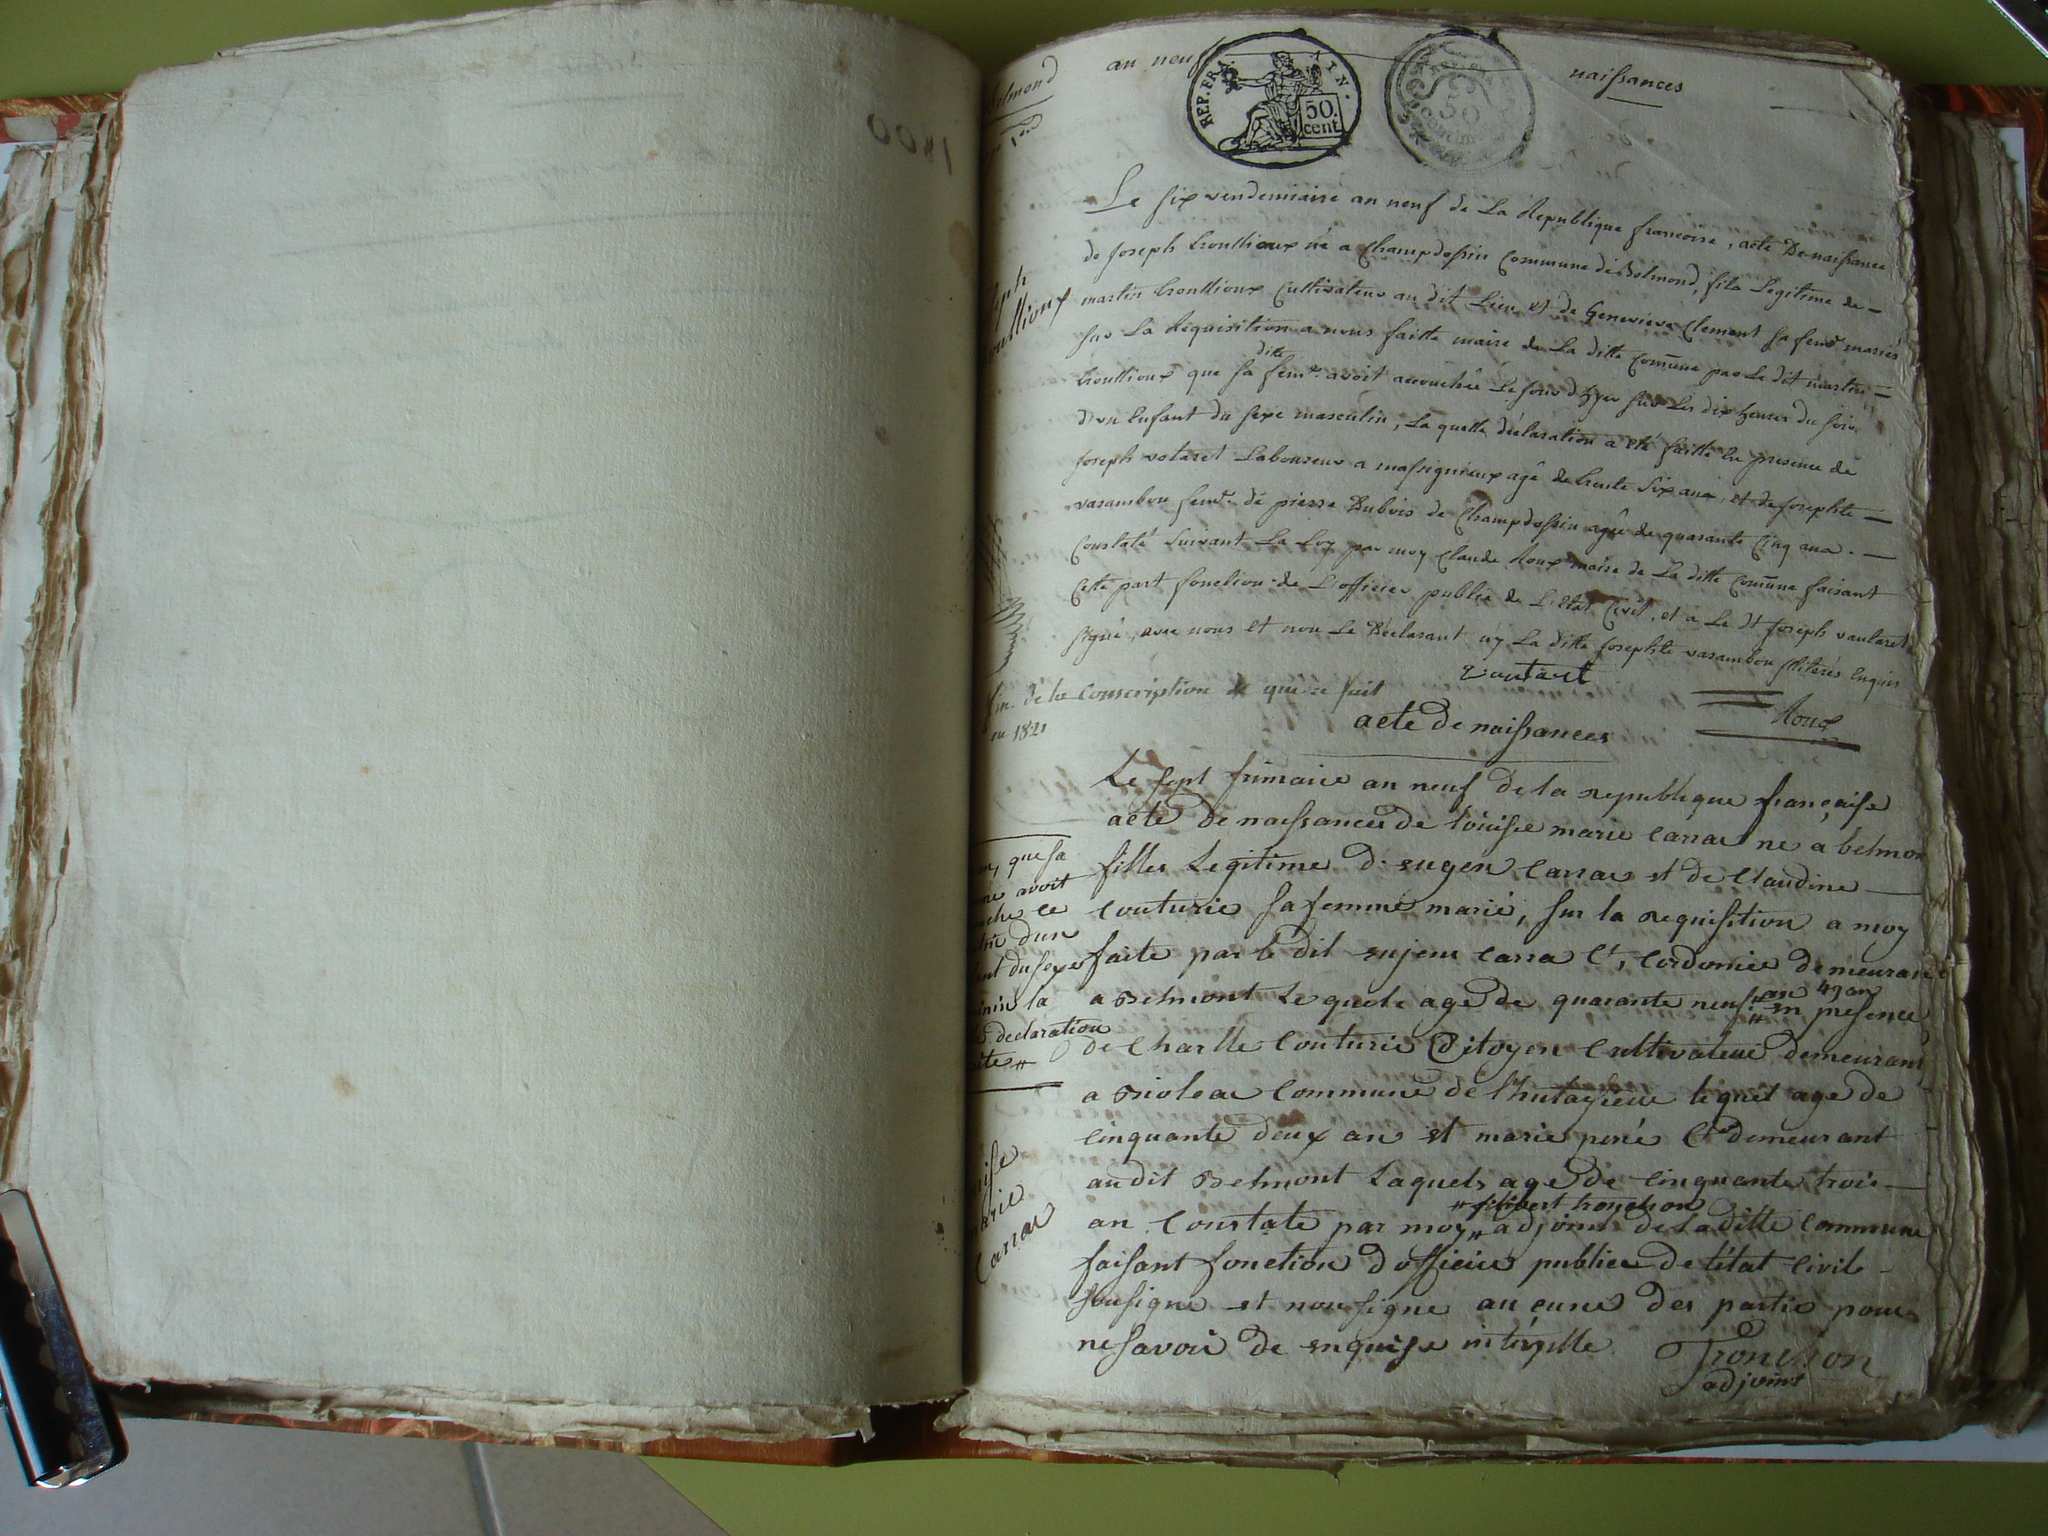 1800
an neuf
naissances
REP. FRA. AIN.
50. cent.
50
Le six vendemiaire an neuf de La Republique francoise, acte De naissance
de Joseph trouilloux né a Champdossin Commune de Belmond, fils Legitime de
martin trouilloux Cultivateur au dit Lieu et de Genevieve Clement sa feme mariés
sur La Requisition a nous faitte maire de La ditte Comune par Le dit martin
trouilloux que sa ditte feme avoit accouchée Le jour d'hyer sur Les dix heures du soir
d'un Enfant du sexe masculin, La quelle déclaration a eté faitte En presence de
Joseph votaret Laboureur a massignieux agé de trente six ans, et de Josephte
varambon feme de pierre Dubois de Champdossin agée de quarante Cinq ans.
Constaté Suivant La Loy par moy Claude Roux maire de La ditte Comune faisant
Cette part fonction de L'officier public de L'Etat Civil, et a Le dt Joseph vautaret
signé, avec nous et non Le Déclarant ny La ditte Josephte varambon illiterés Enquis
vautaret
de la Conscription
Roux
acte De naissances
Le sept frimaire an neuf De la republique française
acte De naissances De louise marie Carra ne a belmon
filles Legitime D eugen Carra et De Claudine
Couturie sa femme marié, sur la requisition a moy
faite par le Dit eujene Carra Ct, Cordonie Demeurant
a Belmont Le quele age De quarante neuf an 49 an en presence
De Charlle Couturie Citoyen Cultivateur Demeurant
a Commune De le quel age De
Cinquante Deux an et marie Demeurant
audit Belmont Laquels age De Cinquante trois
an Constate par moy filibert tronchon adjoint De La Ditte Commune
faisant fonction D officier publice De l'état Civile
Sousigne et non signe aucunes Des partie pour
ne savoir De enquise
Tronchon
adjoint
que sa
avoit
ce
d'un
du sexe
la
declaration
marie
Carra